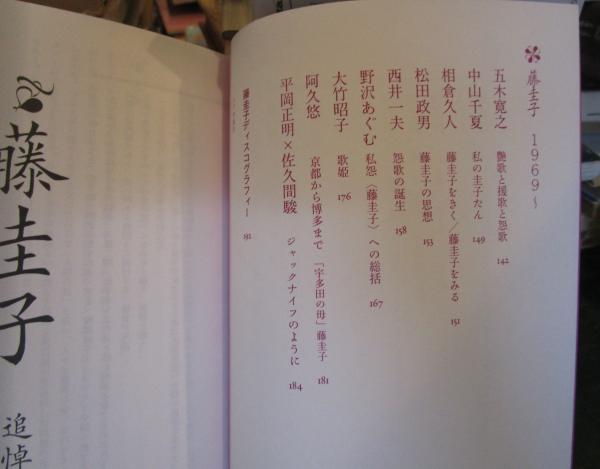 藤圭子 1969〜
五木寛之 艶歌と援歌と怨歌 142
中山千夏 私の圭子たん 149
相倉久人 藤圭子をきく／藤圭子をみる 151
松田政男 藤圭子の思想 153
西井一夫 怨歌の誕生 158
野沢あぐむ 私怨〈藤圭子〉への総括 167
大竹昭子 歌姫 176
阿久悠 京都から博多まで 「宇多田の母」藤圭子 181
平岡正明×佐久間駿 ジャックナイフのように 184
藤圭子ディスコグラフィー 191
藤圭子
追悼